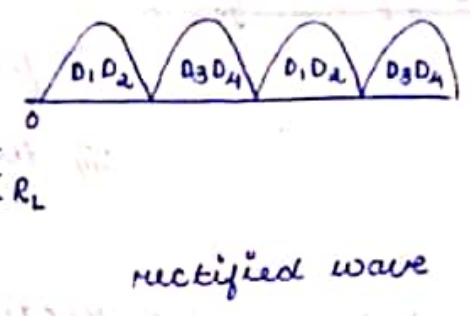 D₁D₂ D₃D₄ D₁D₂ D₃D₄
0
R_L
rectified wave